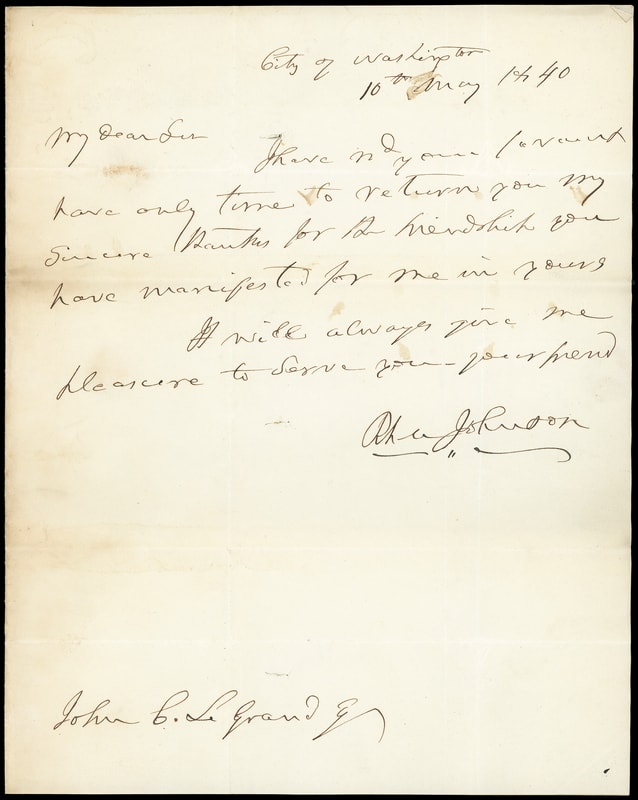 City of Washington
10th May 1840
My Dear Sir
I have rd your favour &
have only time to return you my
sincere thanks for the friendship you
have manifested for me in yours
It will always give me
pleasure to serve you - your friend
Rh M Johnson
John C. Le Grand Esq